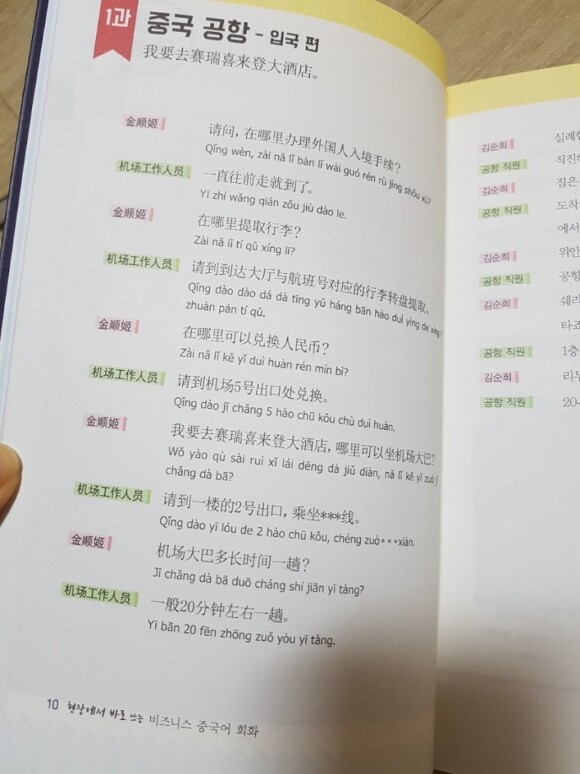 1과
중국 공항 - 입국 편
我要去赛瑞喜来登大酒店。
金顺姬
请问，在哪里办理外国人入境手续？
Qǐng wèn, zài nǎ lǐ bàn lǐ wài guó rén rù jìng shǒu xù?
机场工作人员
一直往前走就到了。
Yī zhí wǎng qián zǒu jiù dào le.
金顺姬
在哪里提取行李？
Zài nǎ lǐ tí qǔ xíng li?
机场工作人员
请到到达大厅与航班号对应的行李转盘提取。
Qǐng dào dào dá dà tīng yǔ háng bān hào duì yìng de xíng
zhuàn pán tí qǔ.
金顺姬
在哪里可以兑换人民币？
Zài nǎ lǐ kě yǐ duì huàn rén mín bì?
机场工作人员
请到机场5号出口处兑换。
Qǐng dào jī chǎng 5 hào chū kǒu chù duì huàn.
金顺姬
我要去赛瑞喜来登大酒店，哪里可以坐机场大巴？
Wǒ yào qù sài ruì xǐ lái dēng dà jiǔ diàn, nǎ lǐ kě yǐ zuò
chǎng dà bā?
机场工作人员
请到一楼的2号出口，乘坐***线。
Qǐng dào yī lóu de 2 hào chū kǒu, chéng zuò***xiàn.
金顺姬
机场大巴多长时间一趟？
Jī chǎng dà bā duō cháng shí jiān yī tàng?
机场工作人员
一般20分钟左右一趟。
Yī bān 20 fēn zhōng zuǒ yòu yī tàng.
10 현장에서 바로 쓰는 비즈니스 중국어 회화
김순희
실례
공항 직원
직진
김순희
짐은
공항 직원
도착
에서
김순희
위안
공항 직원
공항
김순희
쉐라
타죠
공항 직원
1층
김순희
리무
공항 직원
20-